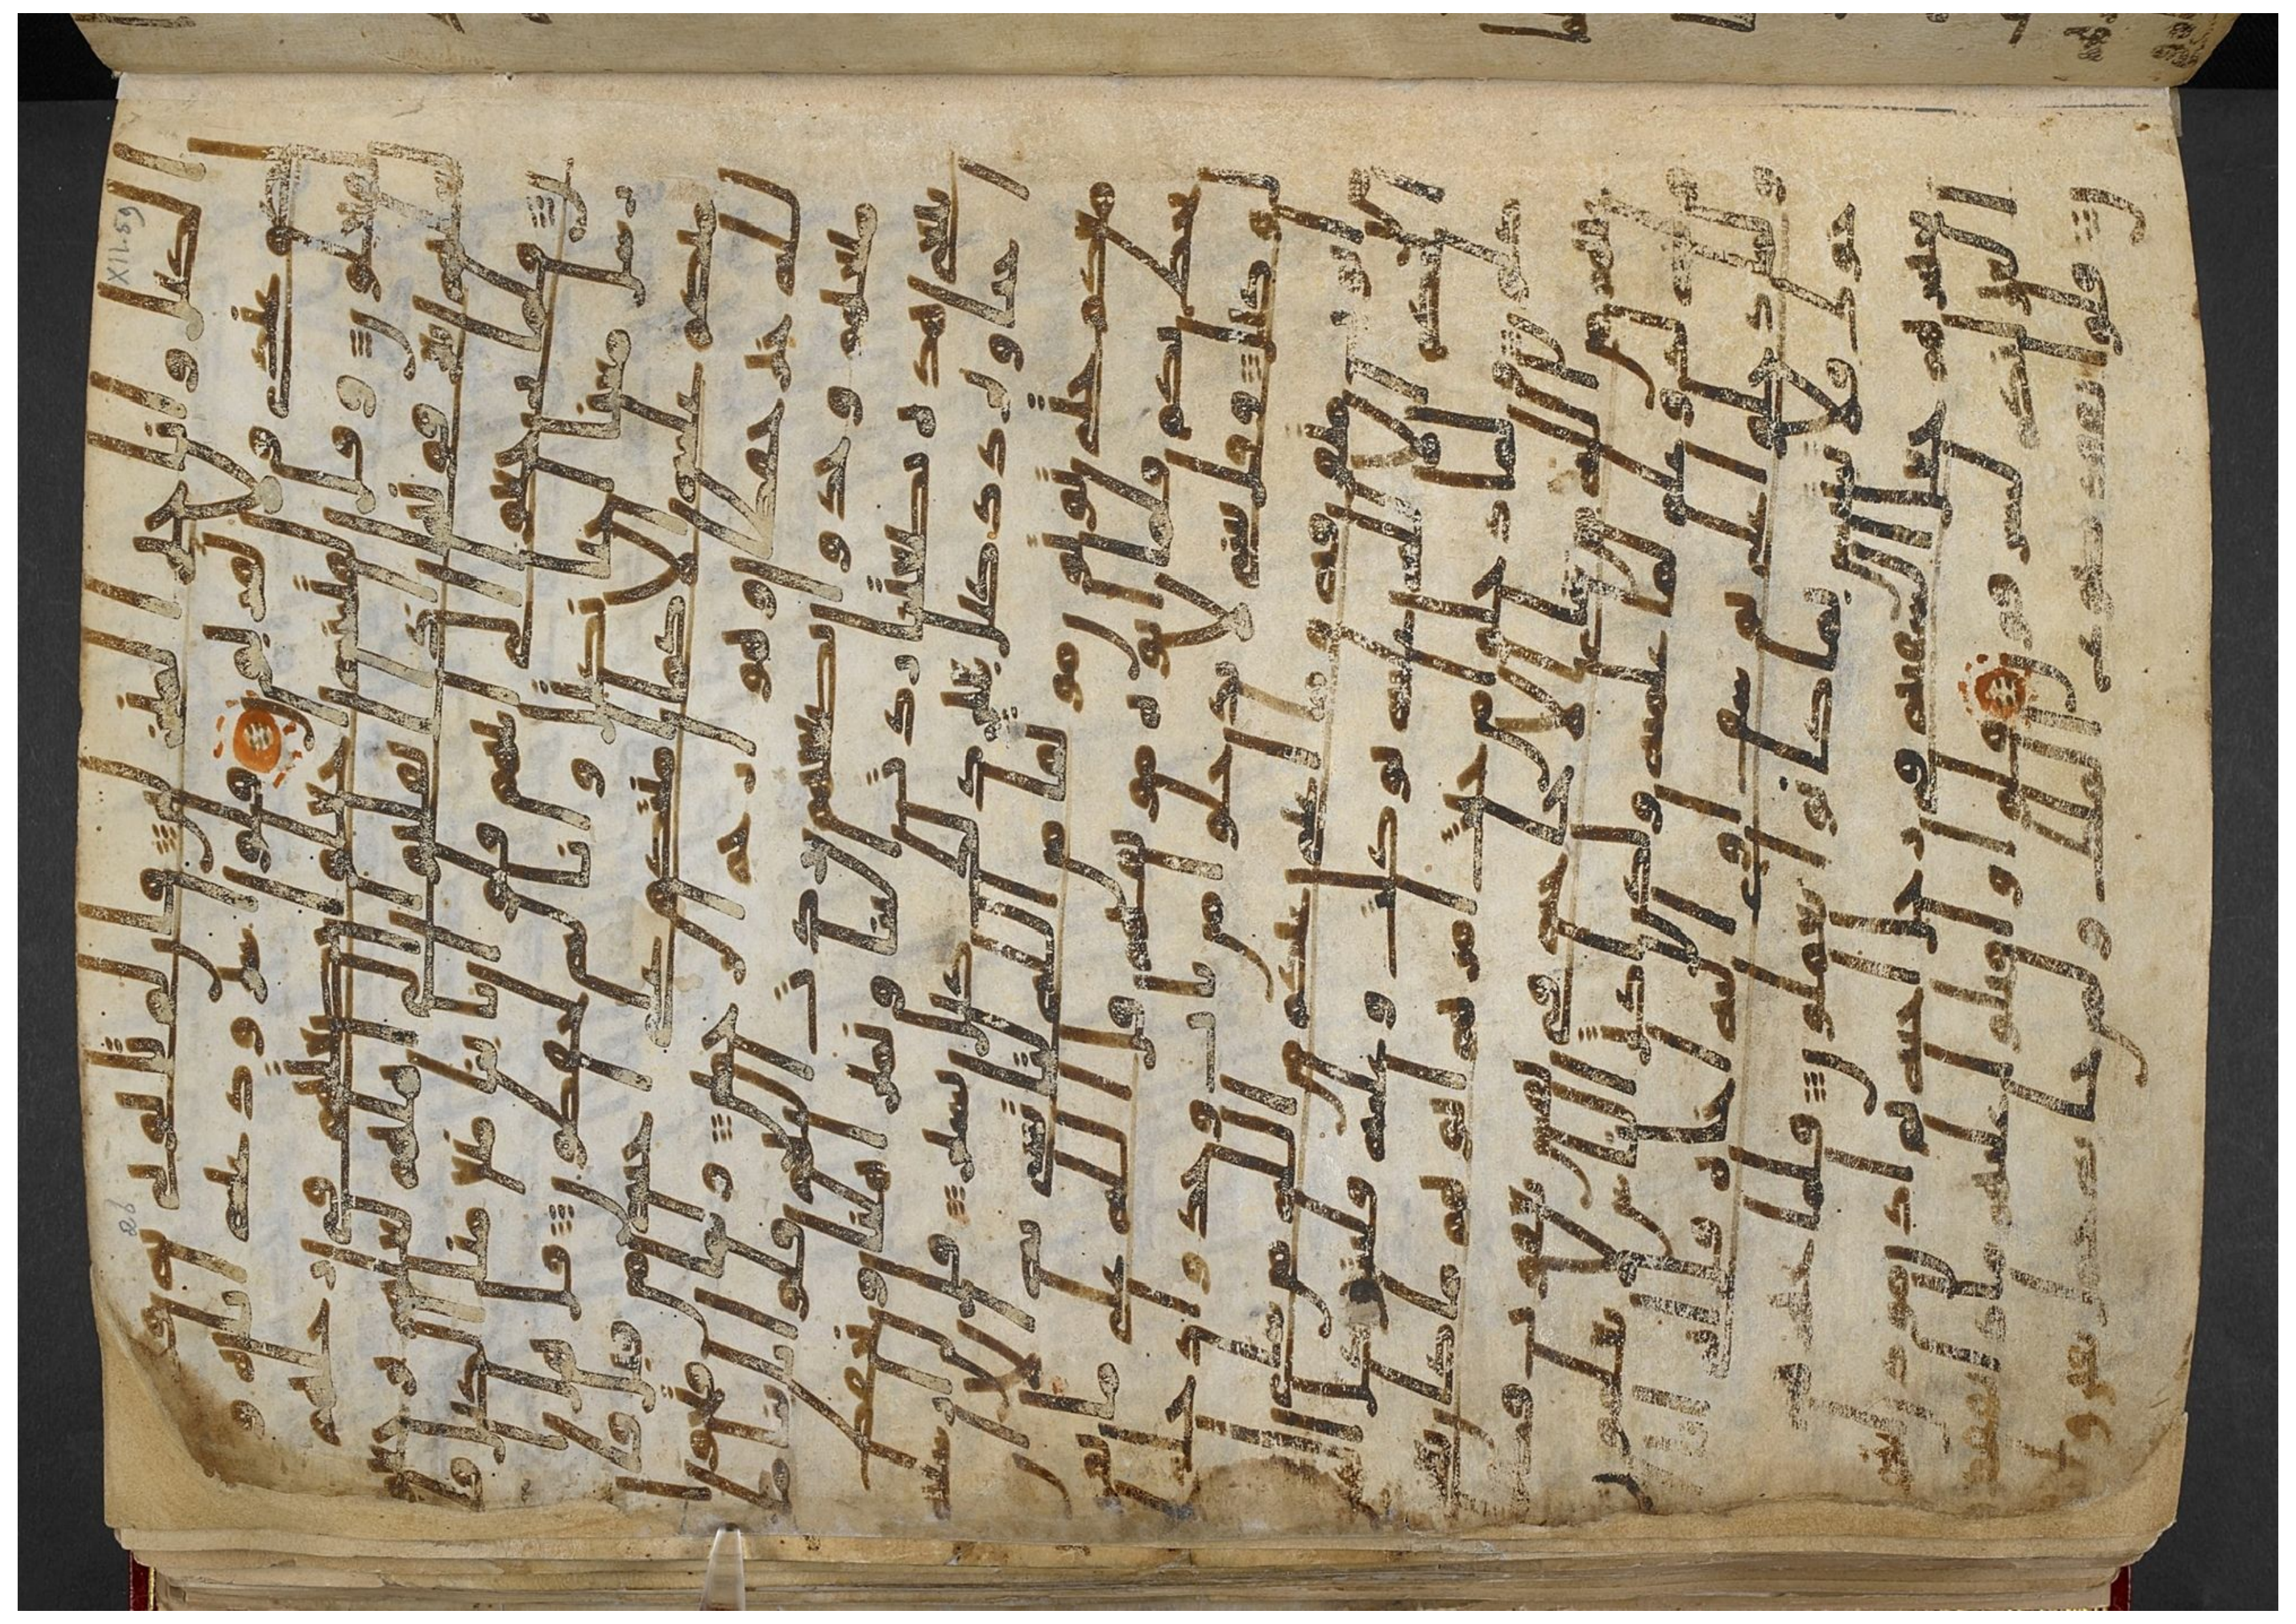 ا الكيل وانا خير المنزلين فان لم تاتوني به فـ
لا كيل لكم عندي ولا تقربون قالوا سنرود عنه اباه و
انا لفعلون وقال لفتينه اجعلوا بضعتهم في رحلهم
لعلهم يعرفونها اذا انقلبوا الى اهلهم لعلهم ير
جعون فلما رجعوا الى ابيهم قالوا يابانا منع منا الكيل فا
رسل معنا اخانا نكتل وانا له لحفظون قال هل ا
منكم عليه الا كما امنتكم على اخيه من قبل فا
لله خير حفظا وهو ارحم الرحمين ولما فتحوا
متعهم وجدوا بضعتهم ردت اليهم قالوا يابانا ما
نبغي هذه بضعتنا ردت الينا ونمير اهلنا ونحفظ
اخانا ونزداد كيل بعير ذلك كيل يسير قال لن ار
سله معكم حتى توتون موثقا من الله لتاتنني به الا ان
يحاط بكم فلما اتوه موثقهم قال الله على ما نقـ
ول وكيل وقال يبني لا تدخلوا من باب وحد واد
خلوا من ابوب متفرقة وما اغني عنكم من الله من
شي ان الحكم الا لله عليه توكلت وعليه فليتوكل ا
لمتوكلون ولما دخلوا من حيث امرهم ابوهم ما كان
يغني عنهم من الله من شي الا حاجة في نفس يعقوب
قضيها وانه لذو علم لما علمنه ولكن اكثر الناس لا يعلمون
ولما دخلوا على يوسف اوى اليه اخاه قال اني انا
اخوك فلا تبتيس بما كانوا يعملون فلما جهز
هم بجهزهم جعل السقية في رحل اخيه ثم اذن موذن
ايتها العير انكم لسرقون قالوا واقبلوا عليهم ماذا تفقد
ون قالوا نفقد صوع الملك ولمن جا به حمل بعير و
XII.59